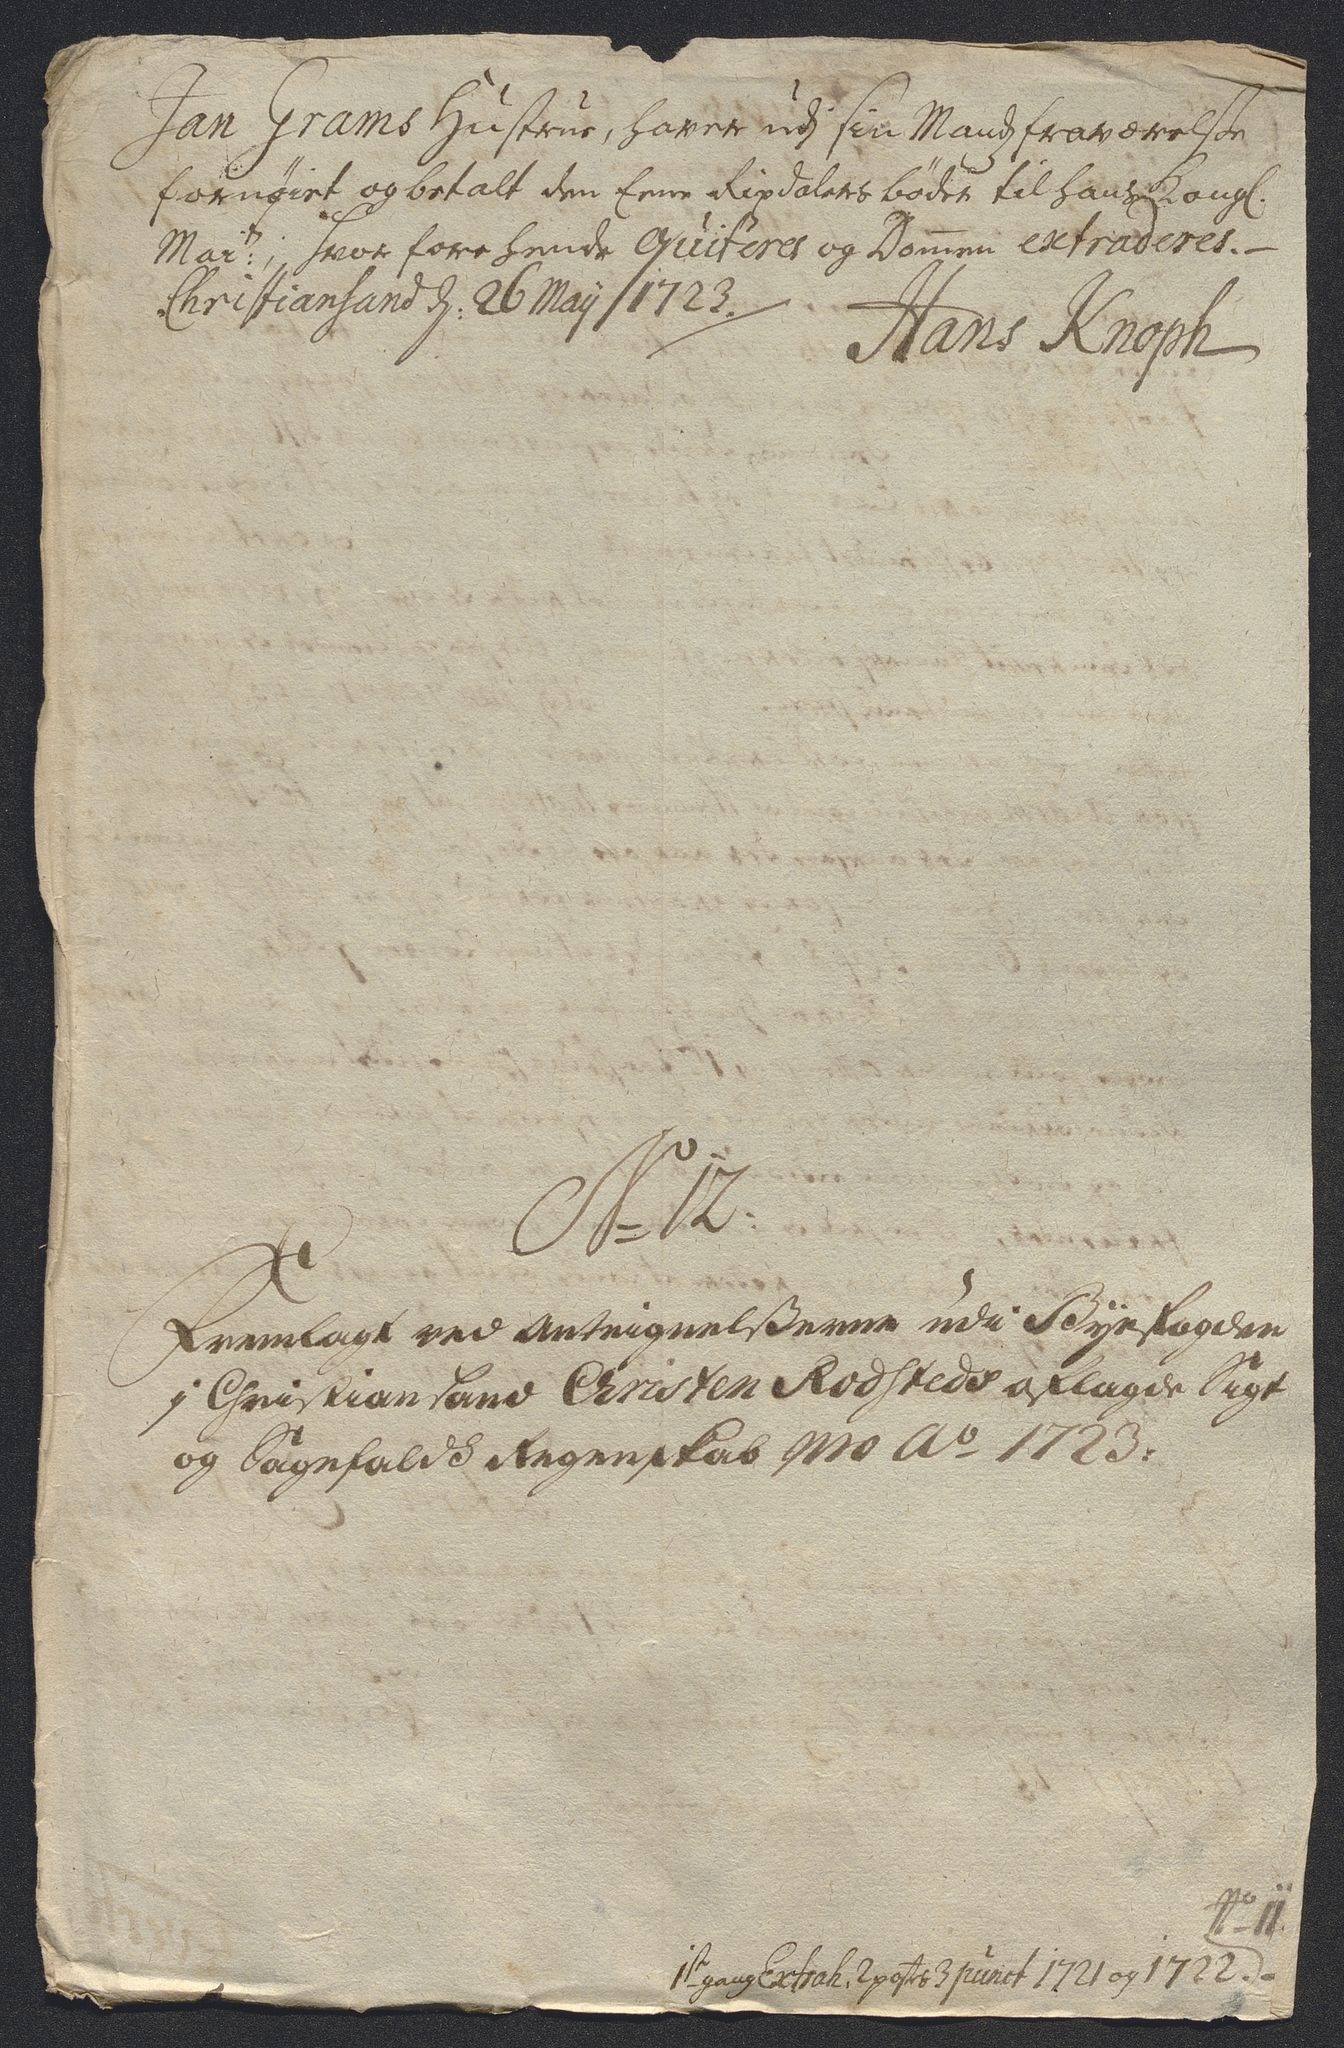 Jan Grams Hustrue, haver udj sin Mands fraværelse
fornøiet og betalt den Eene Rixdalers bøder til hans Kongl.
Mai:ts; hvor fore hende quiteres og Dom̅en extraderes. —
Christiansand d: 26 Maij 1723.
Hans Knoph
No 12:
Fremlagt ved Anteignelßerne udi Bÿefogden
j Christiansand Christen Rodsteds aflagde Sigt
og Sagefalds Regenskab pro Ao 1723:
No 11.
1ste gang Extrah. 2 posts 3 punct 1721 og 1722.